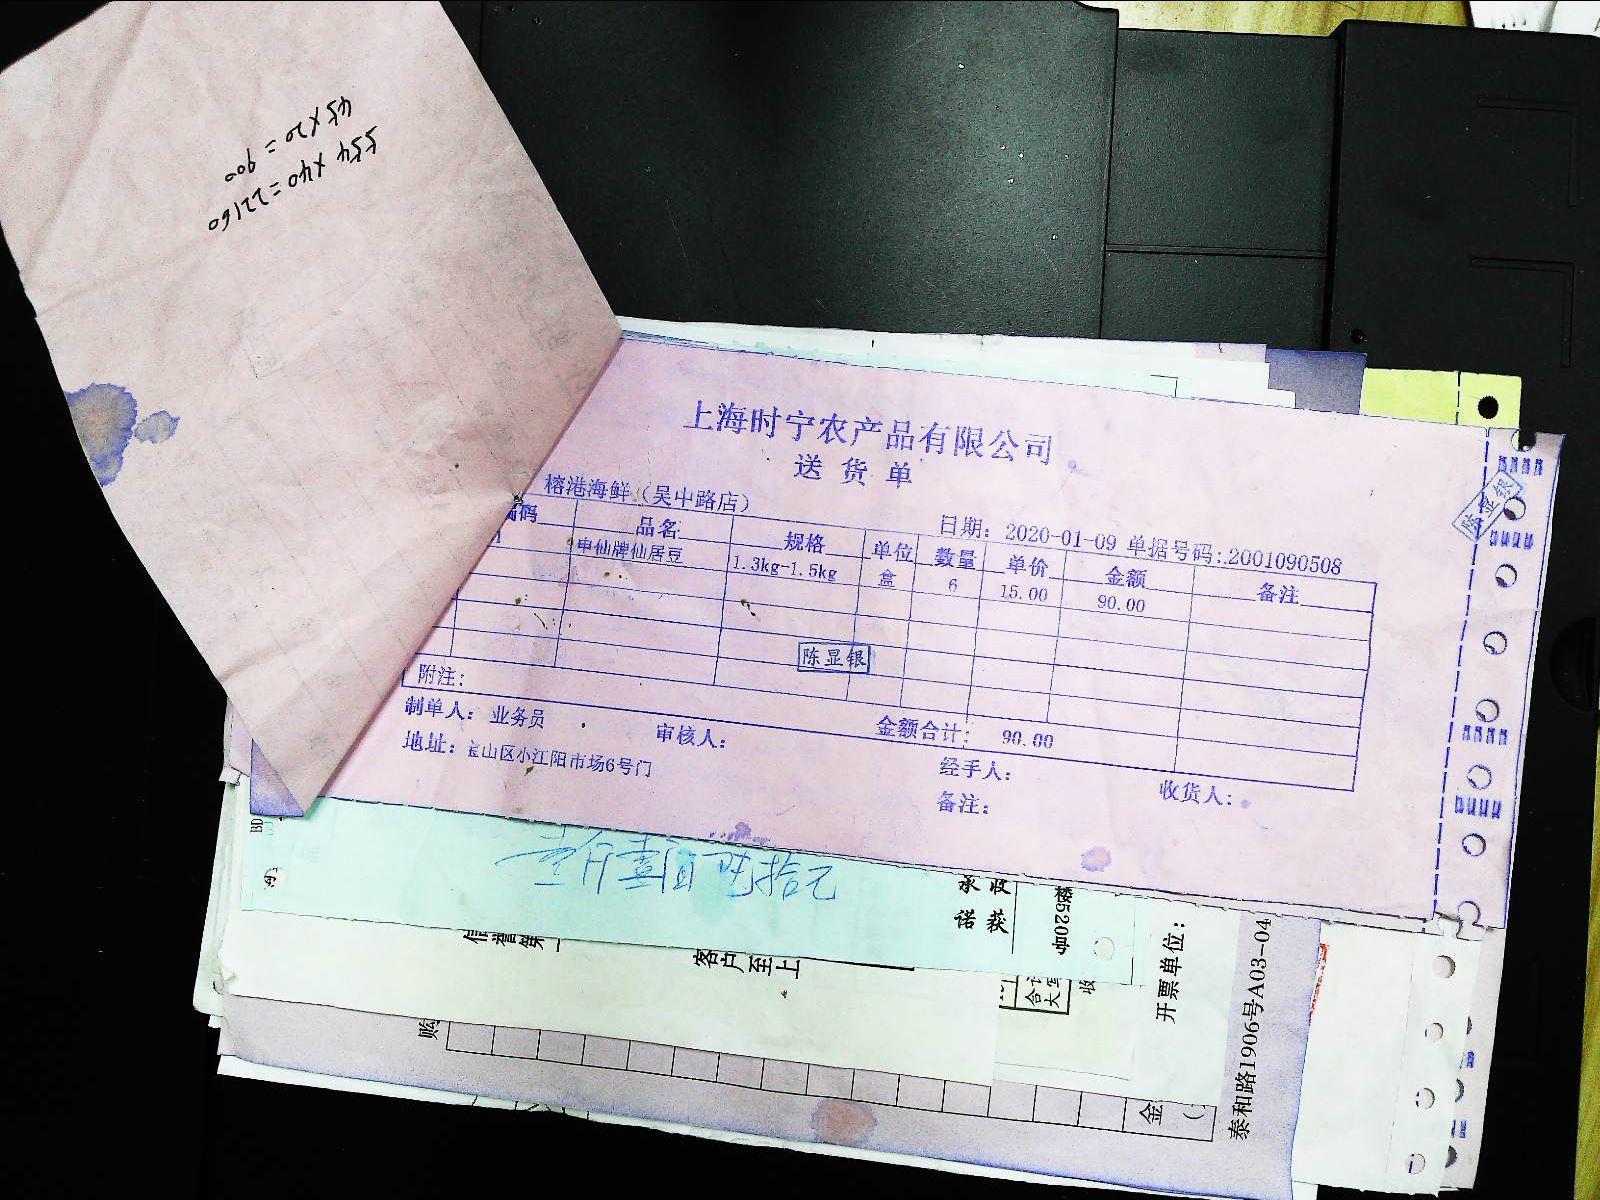 45×20=900
554×40=22160
上海时宁农产品有限公司
送货单
榕港海鲜（吴中路店）
日期：2020-01-09 单据号码：2001090508
编码 品名 规格 单位 数量 单价 金额 备注
1 申仙牌仙居豆 1.3kg-1.5kg 盒 6 15.00 90.00
陈显银
陈显银
附注：
制单人：业务员 审核人： 金额合计：90.00 经手人： 收货人：
地址：宝山区小江阳市场6号门 备注：
承 收
诺 获
楼520响
信誉第一
客户至上
开票单位：
泰和路1906号A03-04
购
合计
大写
收
金
BD